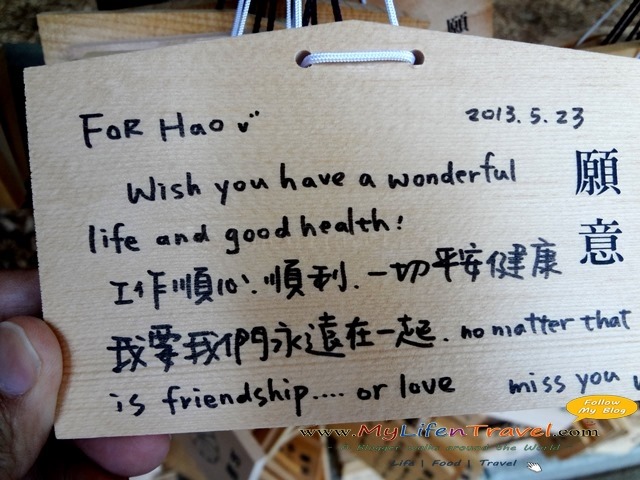 願
FOR Hao
2013.5.23
願意
Wish you have a wonderful
life and good health!
工作順心、順利、一切平安健康
我要我們永遠在一起. no matter that
is friendship.... or love miss you
Follow
My Blog
www.MyLifenTravel.com
Life | Food | Travel